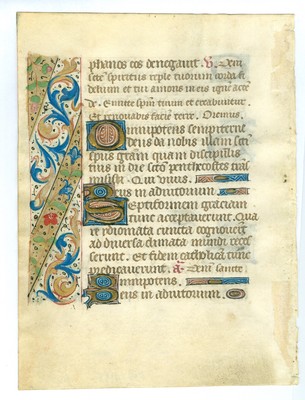 phanos eos denegavit V Veni
scte spiritus reple tuorum corda fi
delium et tui amoris in eis ignē accē
de. Emitte spm tuum et creabuntur.
Et renovabis faciē terre. Oremus.
Omnipotens sempiterne
deus da nobis illam scti
spūs gram quam discipulis
tuis in die scto penthecostes
Deus in adiutorium.
Septiformem graciam
tunc acceptaverunt. Qua
et ydiomata cuncta cognoverūt
ad diversa climata mundi reces
serunt. Et fidem catholicā tunc
predicaverunt. a. Veni sancte
Omnipotens.
Deus in adiutorium.